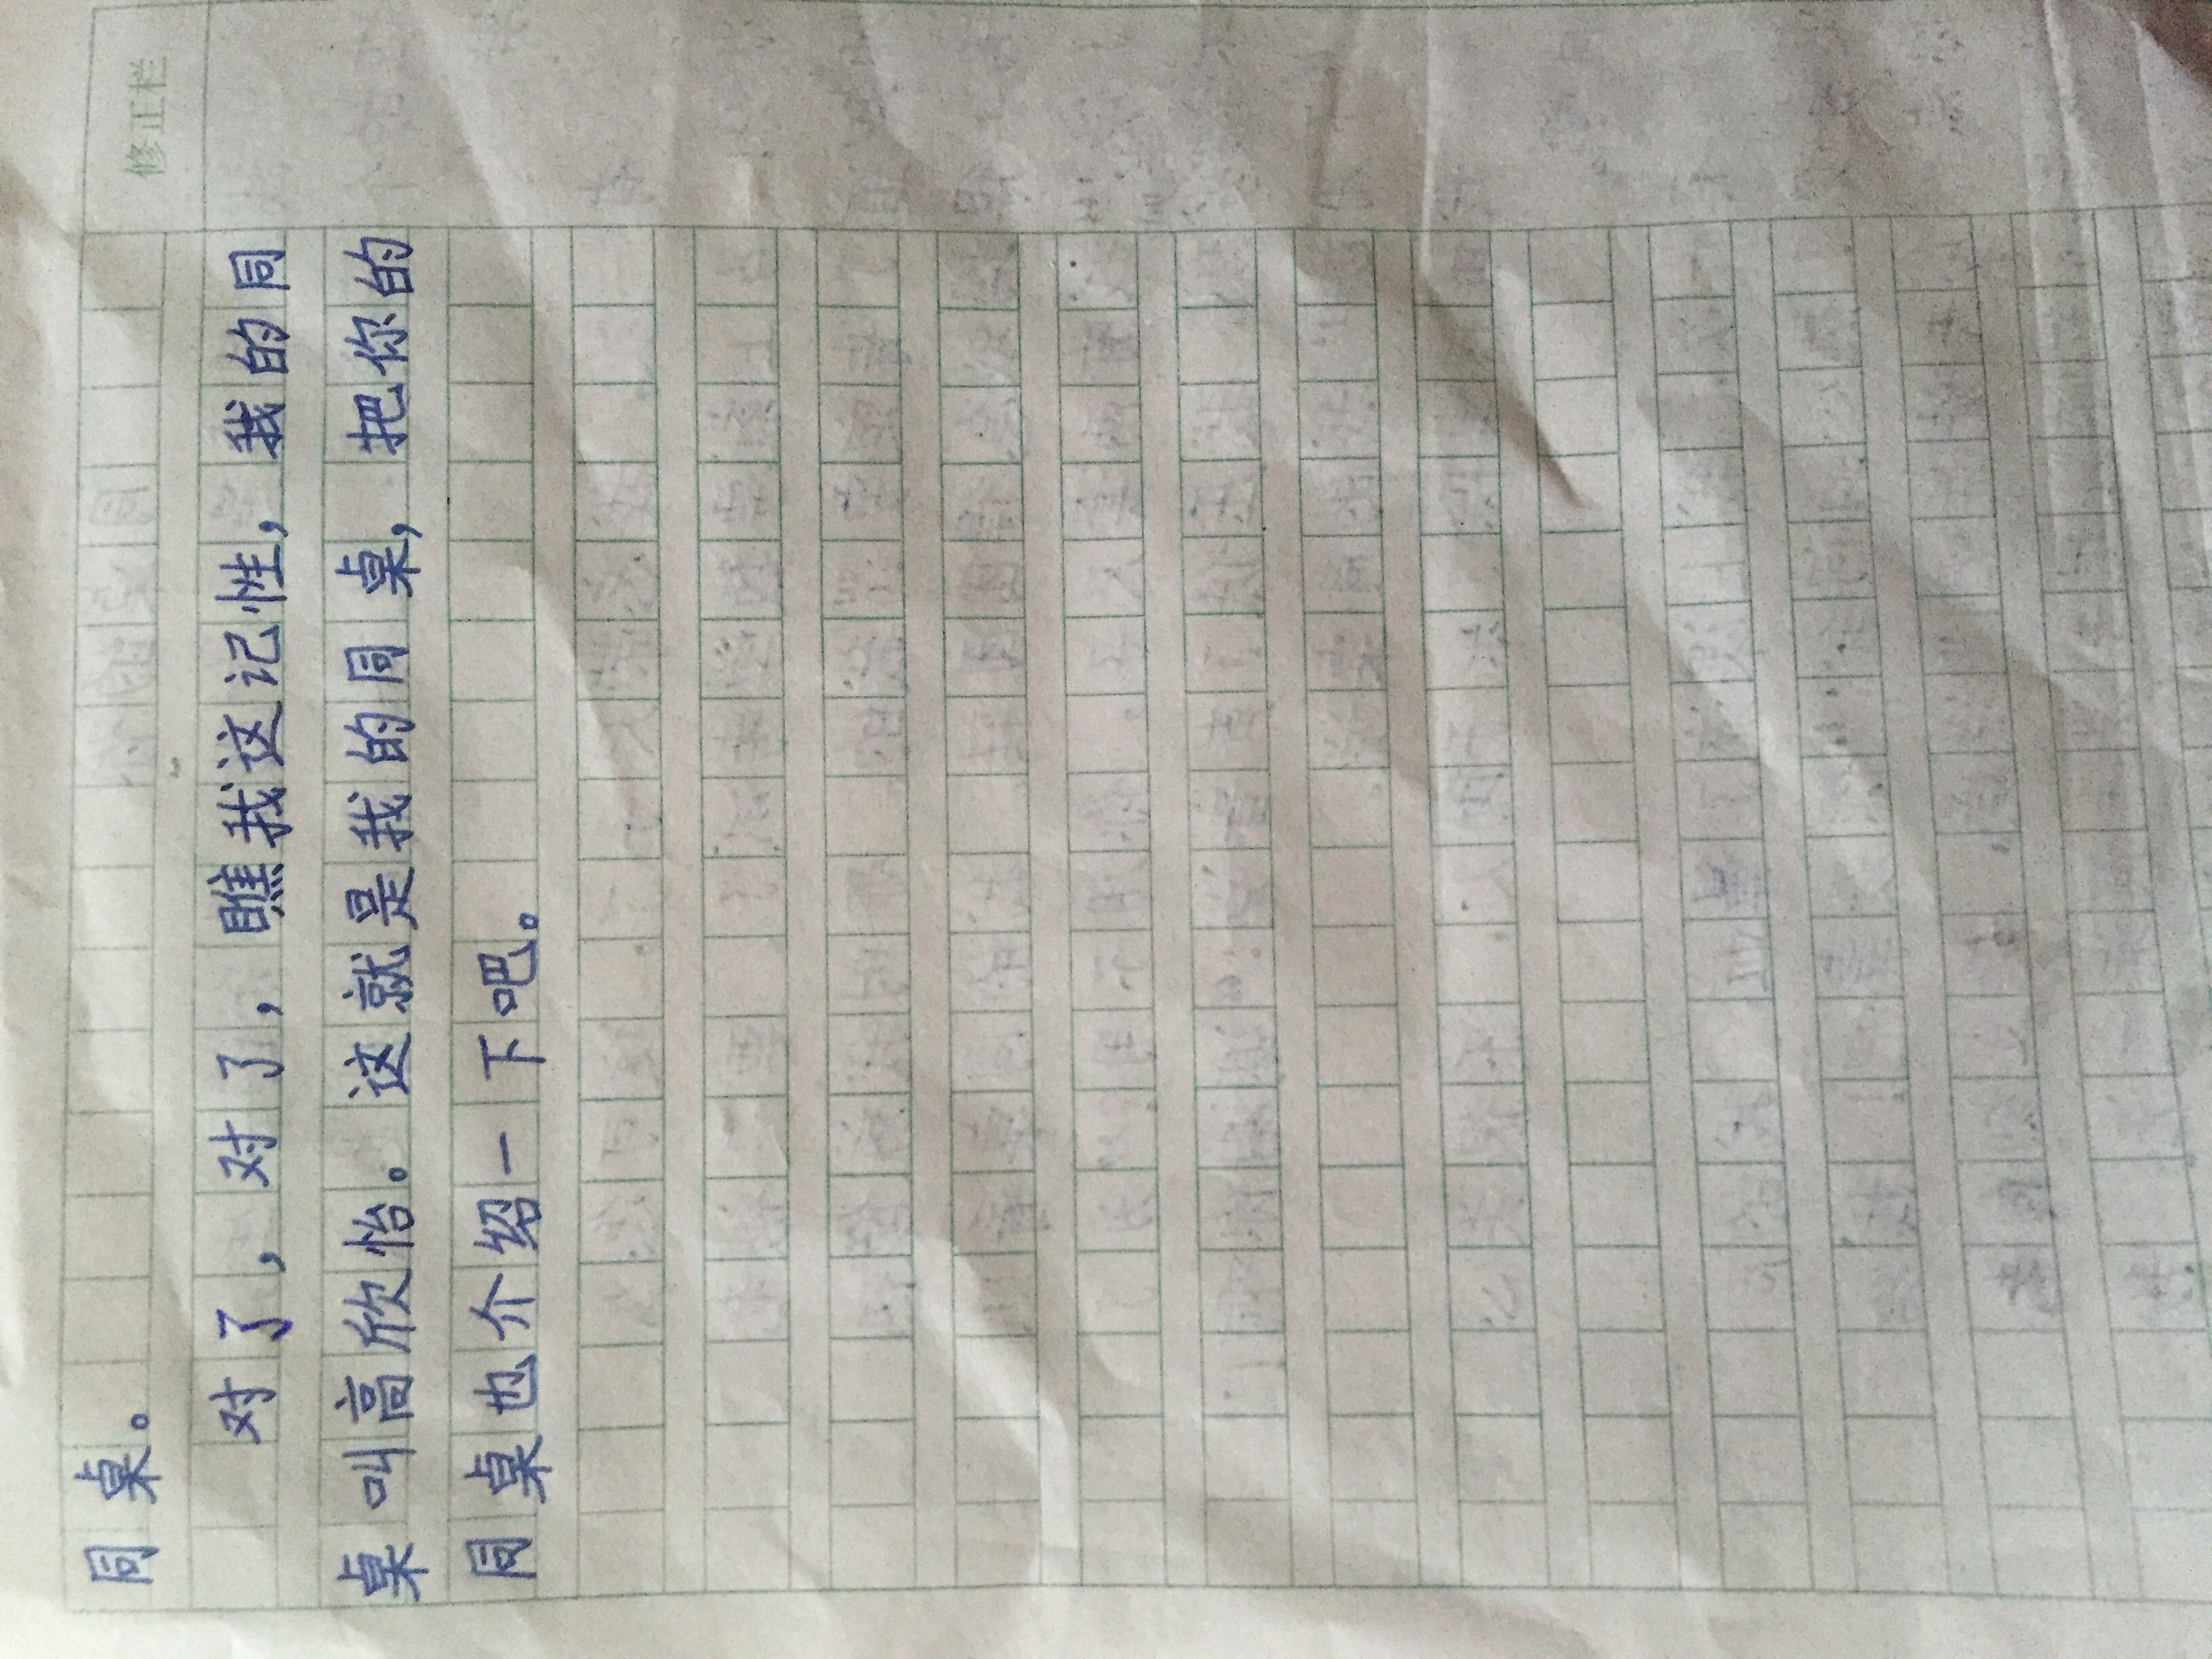 修正栏
同桌。
对了，对了，瞧我这记性，我的同
桌叫高欣怡。这就是我的同桌，把你的
同桌也介绍一下吧。